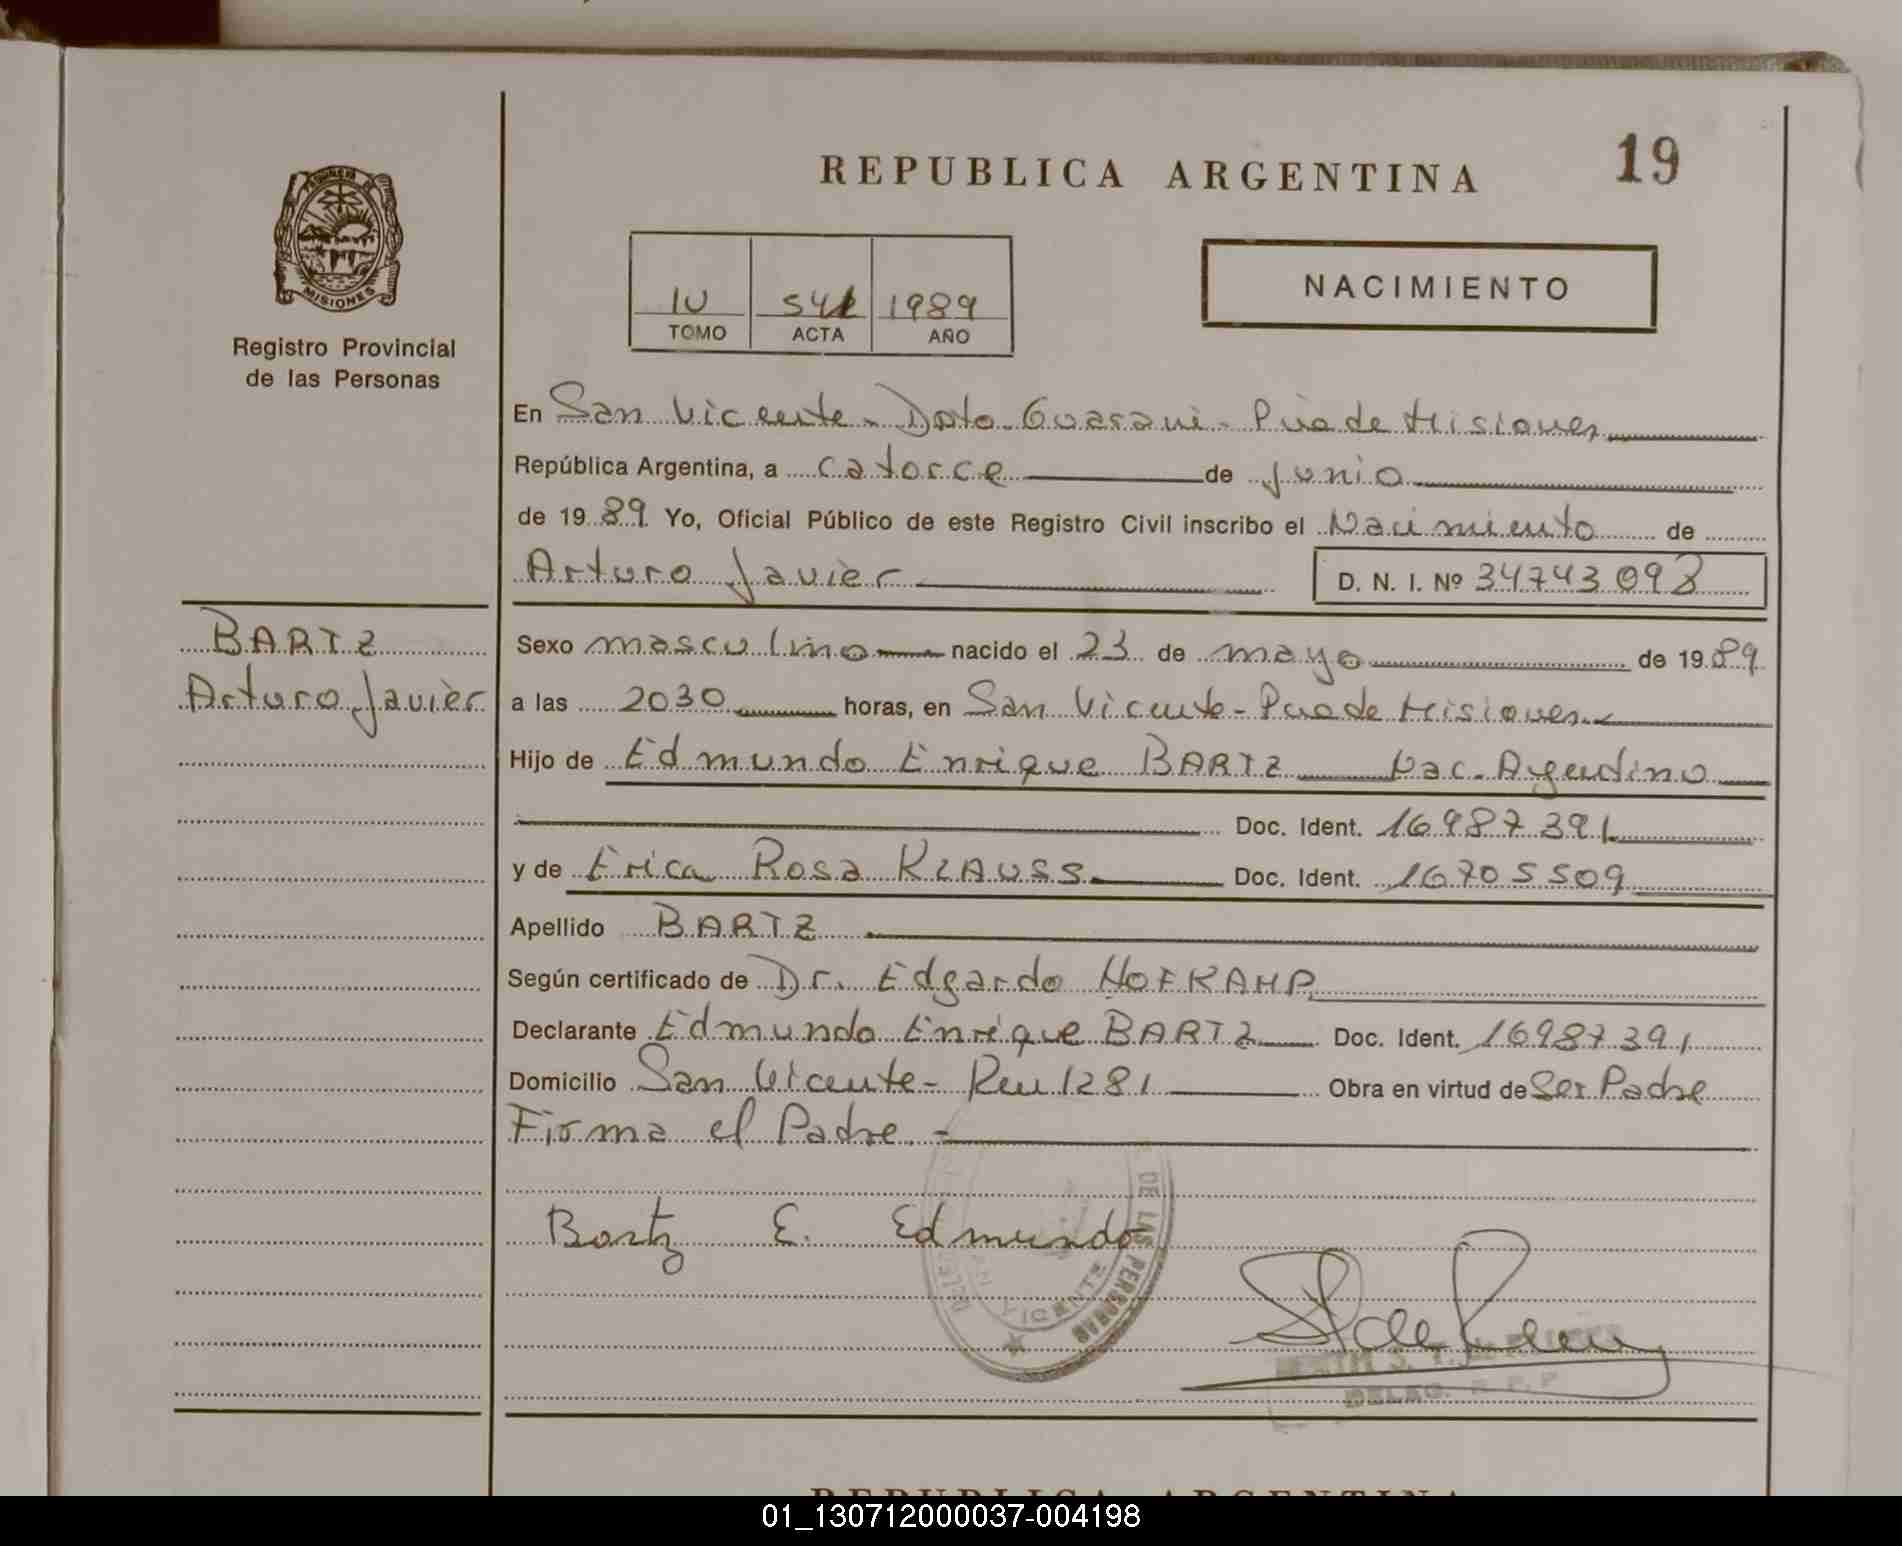 REPUBLICA ARGENTINA
19
PROVINCIA DE
MISIONES
Registro Provincial
de las Personas
NACIMIENTO
IV 1989
TOMO ACTA AÑO
En San Vicente - Dpto. Guarani - Pcia de Misiones
República Argentina, a catorce de Junio
de 1989 Yo, Oficial Público de este Registro Civil inscribo el Nacimiento de
Arturo Javier D. N. I. Nº 34743098
BARTZ
Arturo Javier
Sexo masculino nacido el 23 de mayo de 1989
a las 2030 horas, en San Vicente - Pcia de Misiones
Hijo de Edmundo Enrique BARTZ Nac. Argentino
Doc. Ident. 16987391
y de Erica Rosa KLAUSS Doc. Ident. 16705509
Apellido BARTZ
Según certificado de Dr. Edgardo HOFKAMP
Declarante Edmundo Enrique BARTZ Doc. Ident. 16987391
Domicilio San Vicente - 1281 Obra en virtud de Ser Padre
Firma el Padre -
Bartz E. Edmundo
DE LAS PERSONAS
VICENTE
DELEG.
REPUBLICA ARGENTINA
01_130712000037-004198